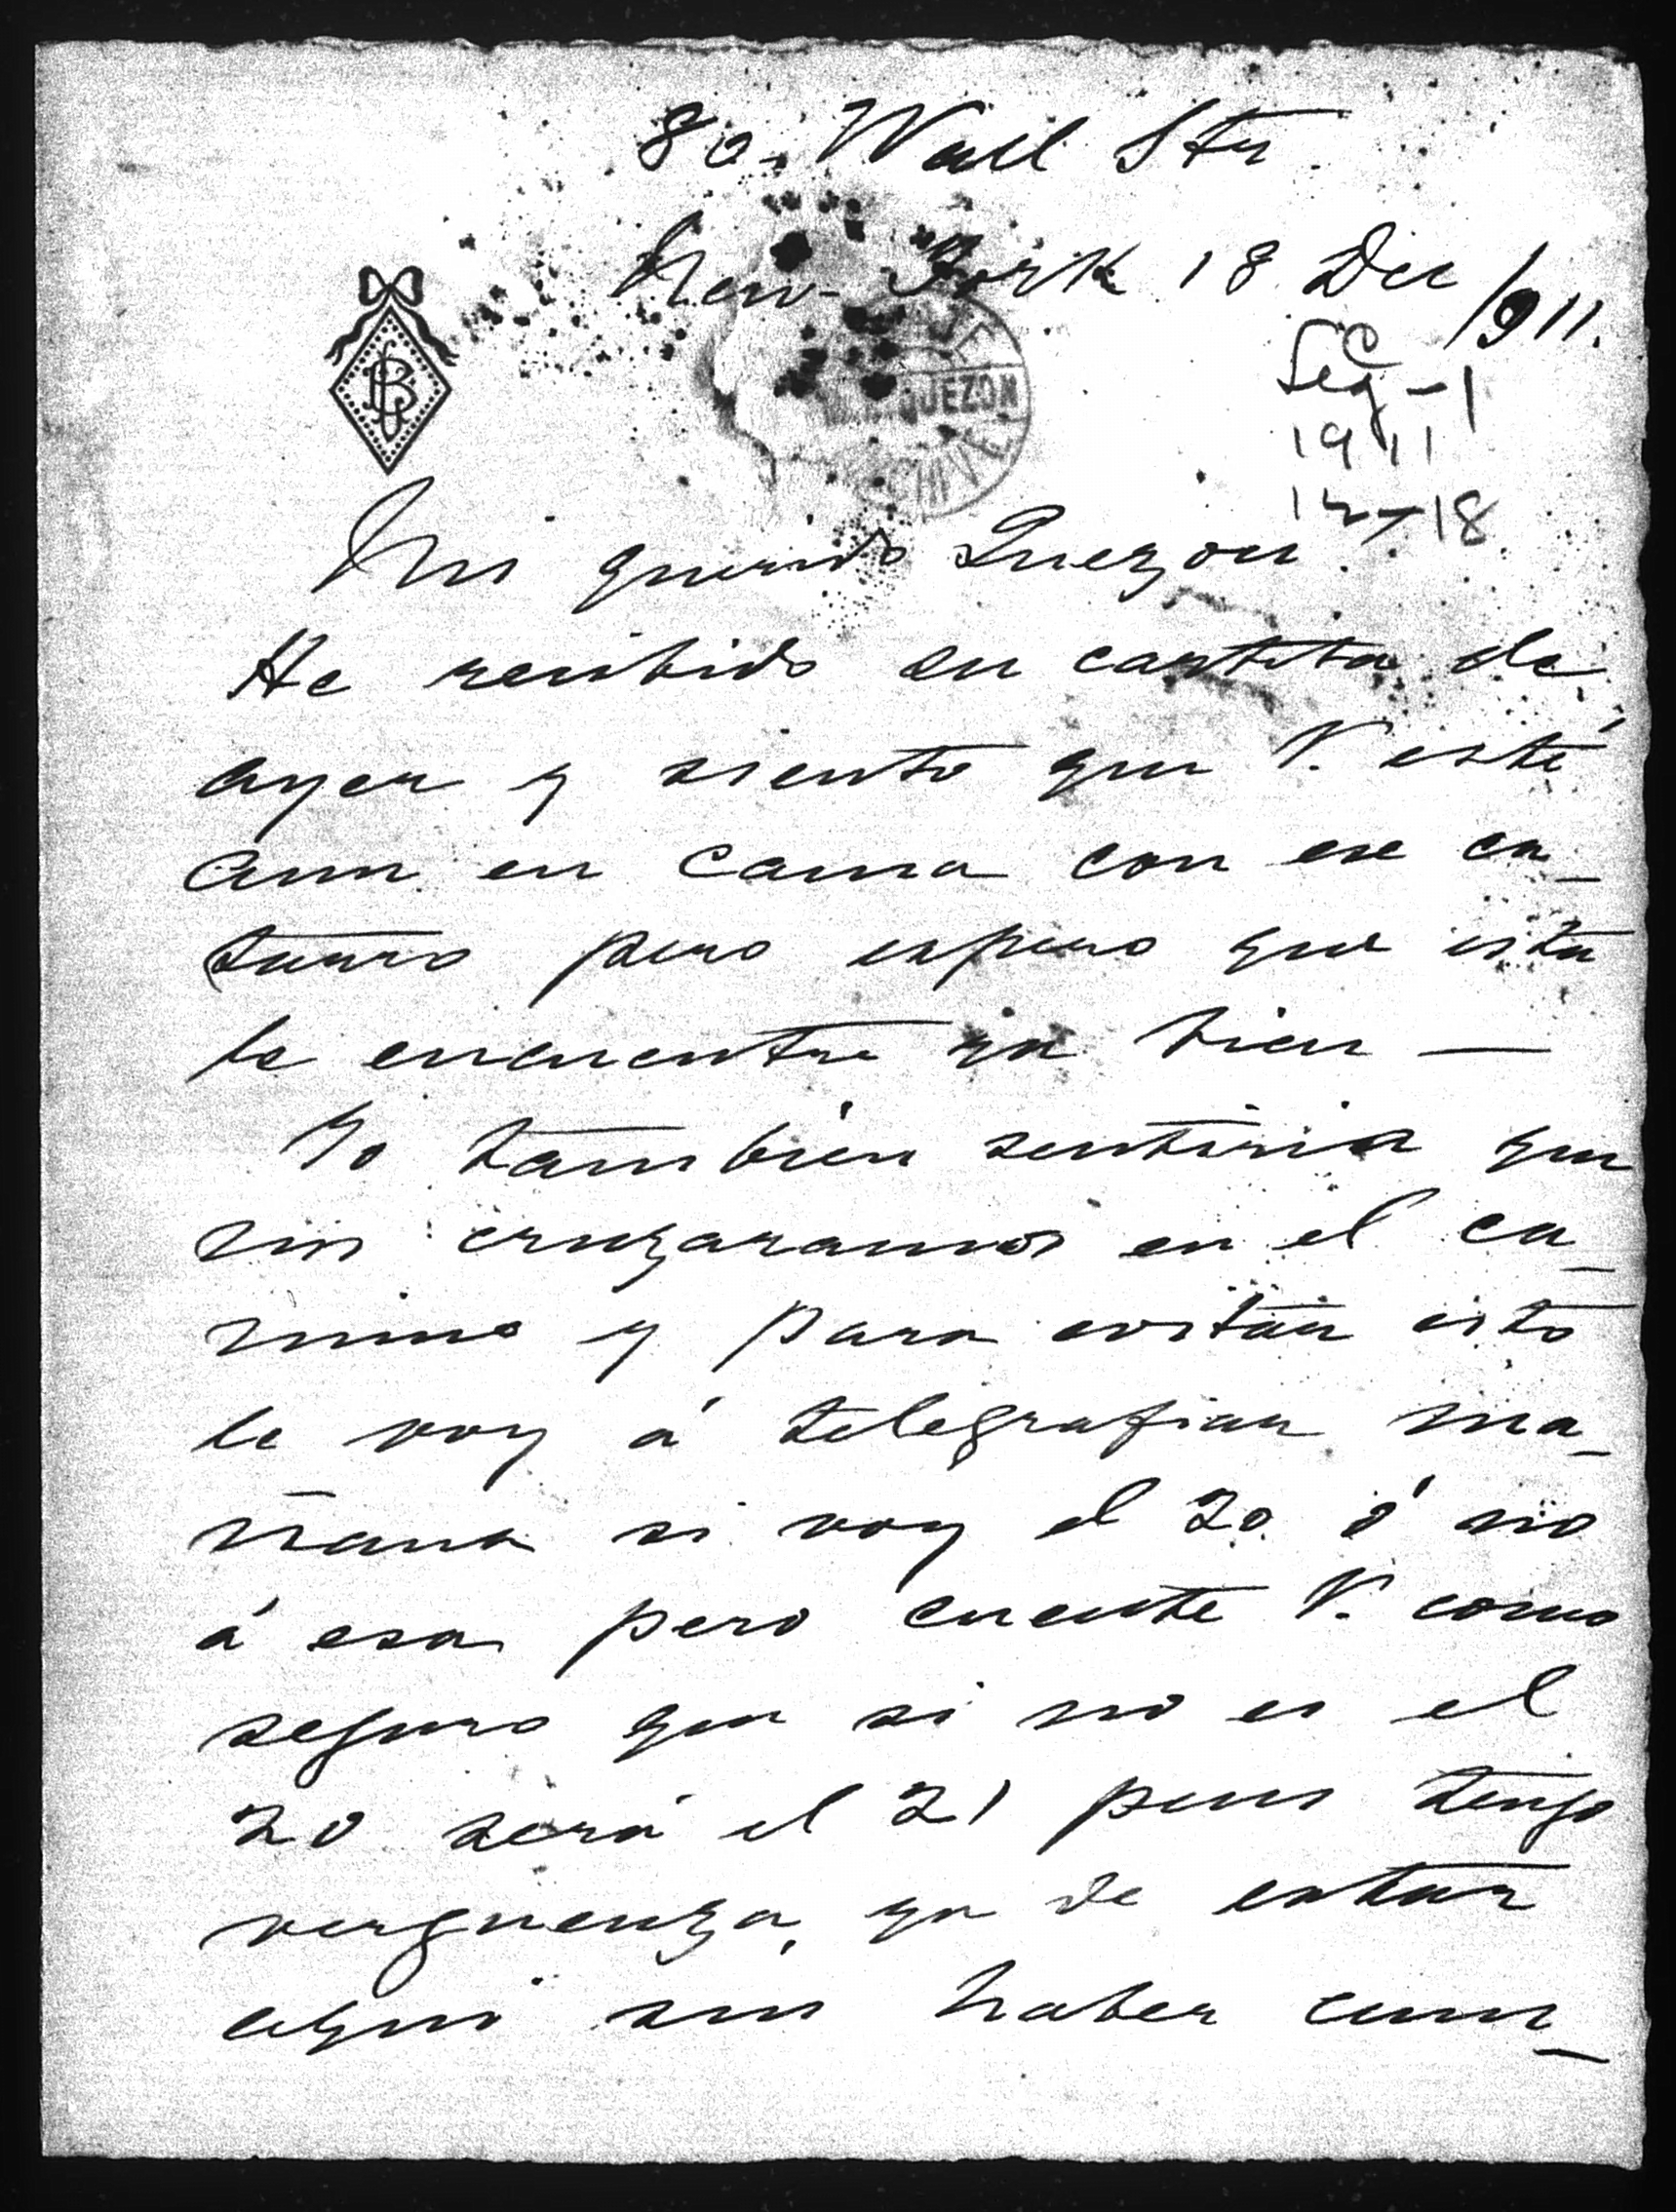 80. Wall Str.
New-York 18 Dec /911.
Seg-1
1911
12-18
QUEZON
Mi querido Quezon:
He recibido su cartita de
ayer y siento que V. esté
aun en cama con ese ca-
tarro pero espero que esta
le encuentre ya bien —
Yo también sentiria que
nos cruzaramos en el ca-
mino y para evitar esto
le voy á telegrafiar ma-
ñana si voy el 20 ó no
á esa pero cuente V. como
seguro que si no es el
20 será el 21 pues tengo
verguenza ya de estar
aqui sin haber cum-